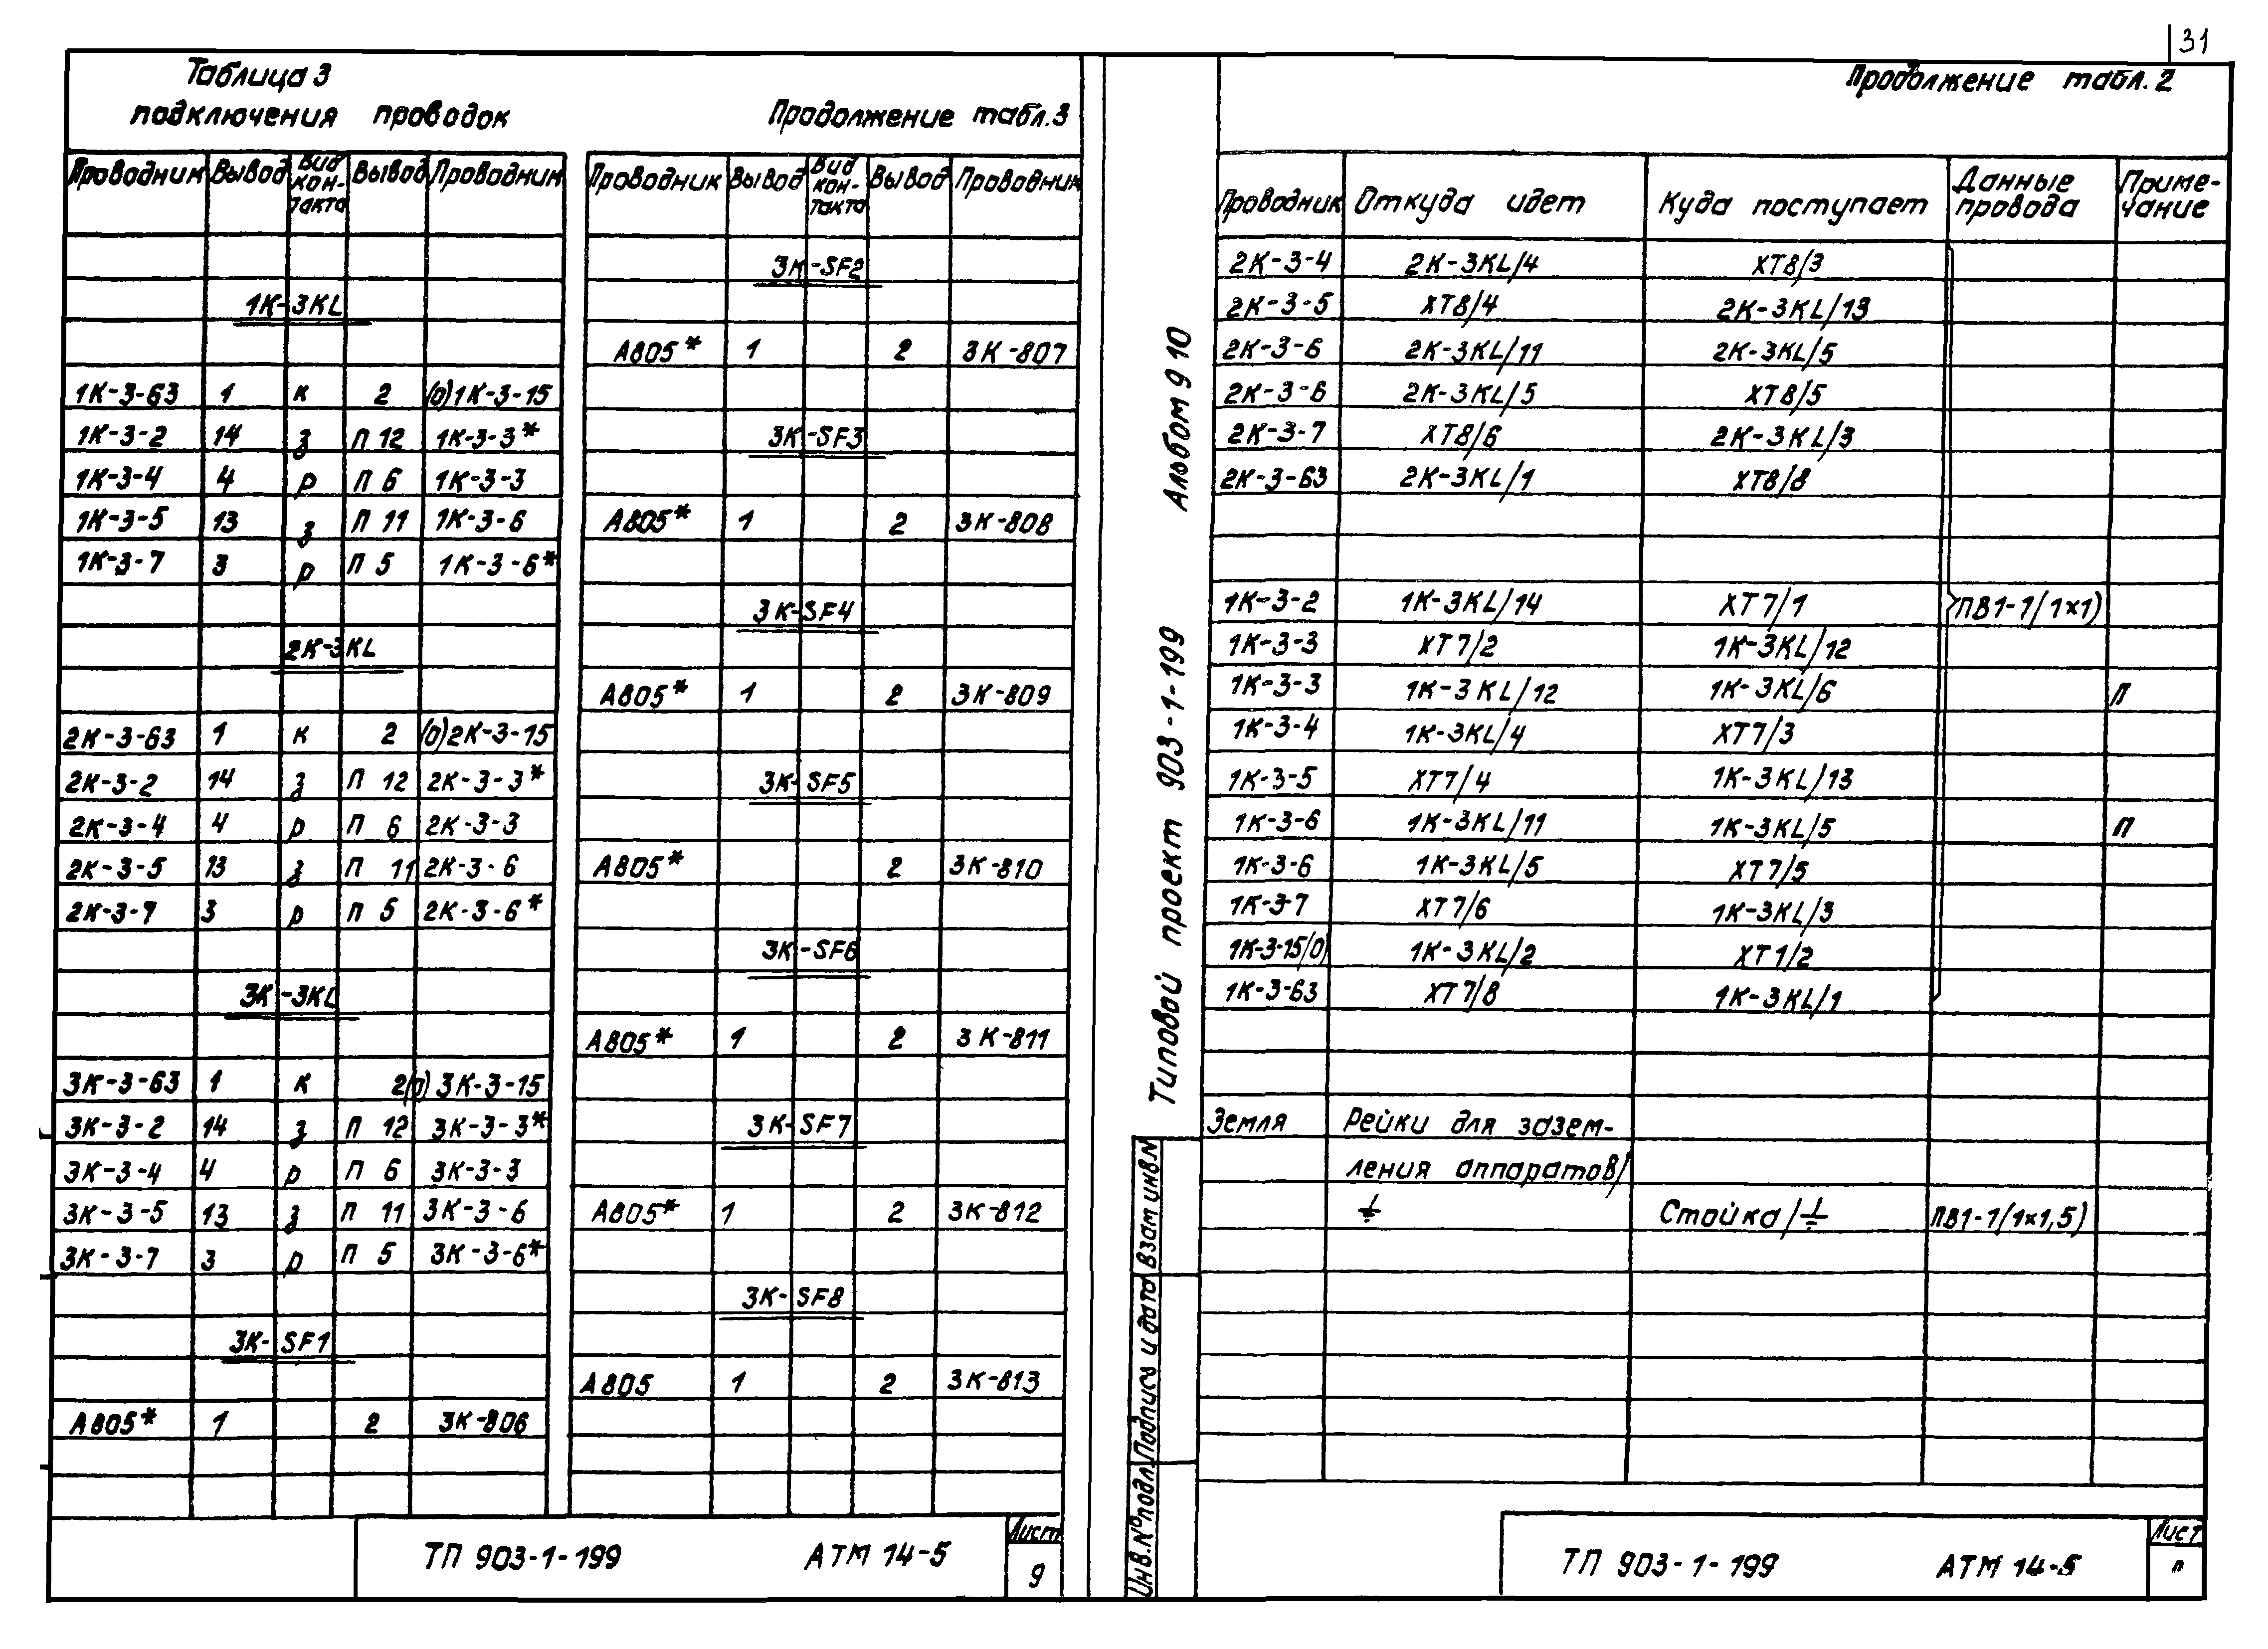 31
Таблица 3
подключения проводок
Продолжение табл.3
Проводник Вывод Вид кон-такта Вывод Проводник
1К-3KL
1К-3-63 1 к 2 (о)1К-3-15
1К-3-2 14 з П 12 1К-3-3*
1К-3-4 4 р П 6 1К-3-3
1К-3-5 13 з П 11 1К-3-6
1К-3-7 3 р П 5 1К-3-6*
2К-3KL
2К-3-63 1 к 2 (о)2К-3-15
2К-3-2 14 з П 12 2К-3-3*
2К-3-4 4 р П 6 2К-3-3
2К-3-5 13 з П 11 2К-3-6
2К-3-7 3 р П 5 2К-3-6*
3К-3KL
3К-3-63 1 к 2(о) 3К-3-15
3К-3-2 14 з П 12 3К-3-3*
3К-3-4 4 р П 6 3К-3-3
3К-3-5 13 з П 11 3К-3-6
3К-3-7 3 р П 5 3К-3-6*
3К-SF1
А805* 1 2 3К-806
Проводник Вывод Вид кон-такта Вывод Проводник
3К-SF2
А805* 1 2 3К-807
3К-SF3
А805* 1 2 3К-808
3К-SF4
А805* 1 2 3К-809
3К-SF5
А805* 2 3К-810
3К-SF6
А805* 1 2 3К-811
3К-SF7
А805* 1 2 3К-812
3К-SF8
А805 1 2 3К-813
ТП 903-1-199 АТМ 14-5
Лист
9
Типовой проект 903-1-199 Альбом 9 10
Инв.№подл. Подпись и дата Взам инв№
Продолжение табл.2
Проводник Откуда идет Куда поступает Данные провода Приме-чание
2К-3-4 2К-3KL/4 ХТ8/3
2К-3-5 ХТ8/4 2К-3KL/13
2К-3-6 2К-3KL/11 2К-3KL/5
2К-3-6 2К-3KL/5 ХТ8/5
2К-3-7 ХТ8/6 2К-3KL/3
2К-3-63 2К-3KL/1 ХТ8/8
1К-3-2 1К-3KL/14 ХТ7/1 ПВ1-1/1×1)
1К-3-3 ХТ7/2 1К-3KL/12
1К-3-3 1К-3KL/12 1К-3KL/6 П
1К-3-4 1К-3KL/4 ХТ7/3
1К-3-5 ХТ7/4 1К-3KL/13
1К-3-6 1К-3KL/11 1К-3KL/5 П
1К-3-6 1К-3KL/5 ХТ7/5
1К-3-7 ХТ7/6 1К-3KL/3
1К-3-15/0) 1К-3KL/2 ХТ1/2
1К-3-63 ХТ7/8 1К-3KL/1
Земля Рейки для зазем-
ления аппаратов/
⏚ Стойка/⏚ ПВ1-1/1×1,5)
ТП 903-1-199 АТМ 14-5
Лист